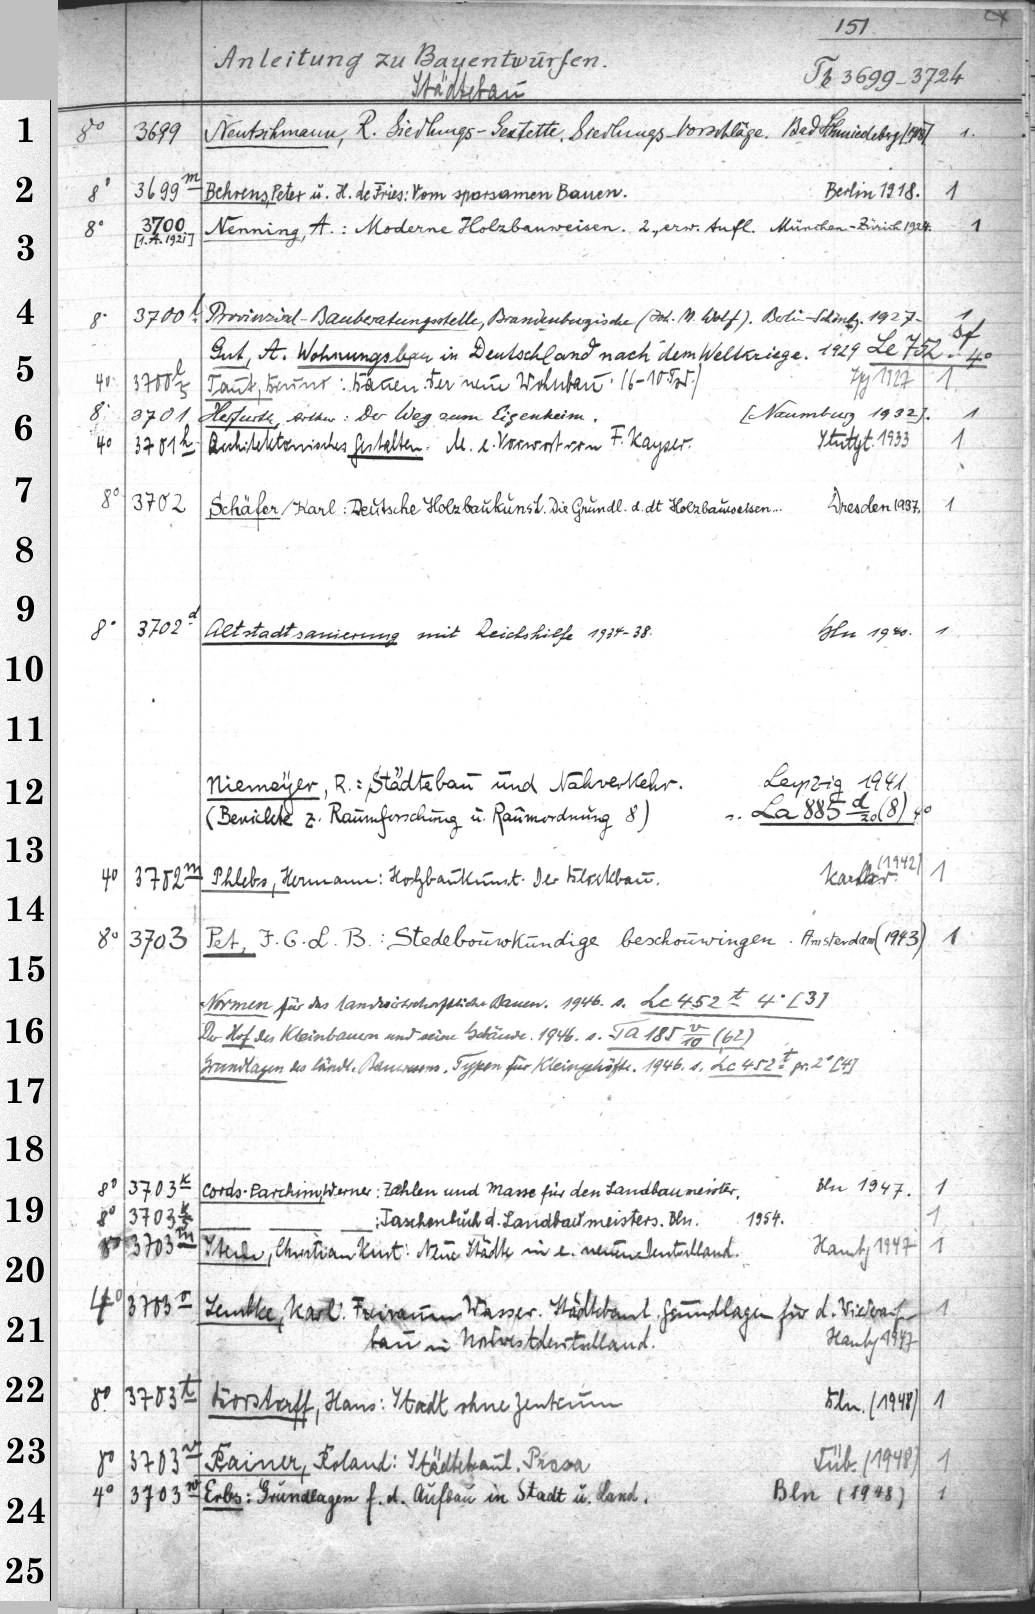 151
Anleitung zu Bauentwürfen.
Städtebau
Tb 3699-3724
1
8° 3699 Neutschmann, R. Siedlungs-Gestelle, Siedlungs-Vorschläge. Bad Schmiedeberg [1918] 1.
2
8° 3699 m Behrens, Peter u. H. de Fries: Vom sparsamen Bauen. Berlin 1918. 1
3
8° 3700 Nenning, A.: Moderne Holzbauweisen. 2., erw. Aufl. München-Zürich 1924. 1
[1. A. 1921]
4
8° 3700 f Provinzial-Bauberatungsstelle, Brandenburgische (Joh. M. Wolf). Berlin-Schönbg. 1927- 1
Gut, A. Wohnungsbau in Deutschland nach dem Weltkriege. 1929 Le 752 df 4°
5
4° 3700 Taut, Bruno: Bauen. Der neue Wohnbau. (6-10 Tsd.) Lpz 1927 1
8° 3701 Herfurth, Arthur: Der Weg zum Eigenheim. [Naumburg 1932]. 1
6
4° 3701 h Architektonisches Gestalten. M. e. Vorwort von F. Kayser. Stuttgt. 1933 1
7
8° 3702 Schäfer, Karl: Deutsche Holzbaukunst. Die Grundl. d. dt Holzbauweisen... Dresden 1937. 1
8
9
8° 3702 d Altstadtsanierung mit Reichshilfe 1934-38. Bln 1940. 1
10
11
12
Niemeyer, R.: Städtebau und Nahverkehr. Leipzig 1941
(Berichte z. Raumforschung u. Raumordnung 8) s. La 885 d/20 (8) 4°
13
4° 3702 m Phleps, Hermann: Holzbaukunst. Der Blockbau. Karlsr. (1942) 1
14
8° 3703 Pet, F. C. L. B.: Stedebouwkundige beschouwingen. Amsterdam (1943) 1
15
Normen für das landwirtschaftliche Bauen. 1946. s. Lc 452 t 4° [3]
16
Der Hof des Kleinbauern und seine Gebäude. 1946. s. Ta 185 v/10 (62)
Grundlagen des ländl. Bauwesens. Typen für Kleingehöfte. 1946. s. Lc 452 t gr. 2° [4]
17
18
8° 3703 k Cords-Parchim, Werner: Zahlen und Masse für den Landbaumeister. Bln 1947. 1
19
8° 3703 — — — : Taschenbuch d. Landbaumeisters. Bln. 1954. 1
8° 3703 m Sterle, Christian Kurt: Neue Städte in e. neuen Deutschland. Hambg 1947 1
20
4° 3703 o Lembke, Karl. Freiraum Wasser. Städtebaul. Grundlagen für d. Wiederauf-
21
bau in Nordwestdeutschland. Hambg 1947 1
22
8° 3703 t Borstorff, Hans: Stadt ohne Zentrum Bln. (1948) 1
23
8° 3703 v Rainer, Roland: Städtebaul. Prosa Tüb. (1948) 1
4° 3703 w Erbs: Grundlagen f. d. Aufbau in Stadt u. Land. Bln (1948) 1
24
25